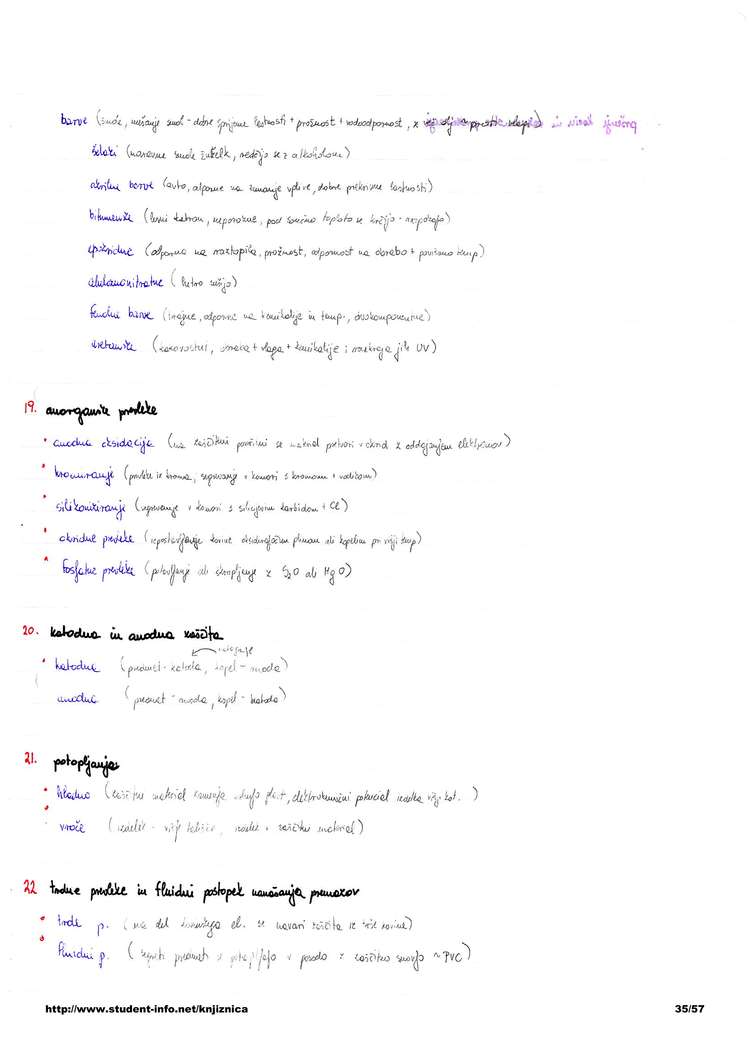 barve (smole, mešanje smol - dobre sprijemne lastnosti + prožnost + vodoodpornost, z in visok sijaj
šelaki (naravne smole žuželk, redčijo se z alkoholom)
akrilne barve (auto, odporne na zunanje vplive, dobre prekrivne lastnosti)
bitumenske (lesni katran, neporozne, pod sončno toploto se krčijo - razpokajo)
epoksidne (odporna na raztopila, prožnost, odpornost na obrabo + površino temp)
celulozonitratne (hitro sušijo)
fenolni barve (trajne, odporne na kemikalije in temp., dvokomponentne)
uretanske (kakovostni, obraba + vlaga + kemikalije; razkraja jih UV)
19. anorganske prevleke
• anodna oksidacija (na zaščitni površini se material pretvori v oksid z oddajanjem elektronov)
• kromiranje (prevleke iz kroma, segrevanje v komori s kromom + vodikom)
• silikoniziranje (segrevanje v komori s silicijevim karbidom + Cl)
• oksidne prevleke (vzpostavljanje kovine oksidirajočim plinom ali kopelim pri višji temp)
• fosfatne prevleke (potapljanje ali škropljenje z S₂O ali MgO)
20. katodna in anodna zaščita
nalaganje
• katodna (predmet - katoda, kopel - anoda)
anodna (predmet - anoda, kopel - katoda)
21. potapljanje
• hladno (zaščitni material plast, elektrokemični potencial izdelka višji kot. )
• vroče (izdelek - višje tališče, izdelek + zaščitni material)
22 trdne prevleke in fluidni postopek nanašanja premazov
• trde p. (na del el. se navari zaščita iz trše kovine)
• fluidni p. (segreti predmeti se potapljajo v posodo z zaščitno snovjo ~ PVC)
http://www.student-info.net/knjiznica 35/57